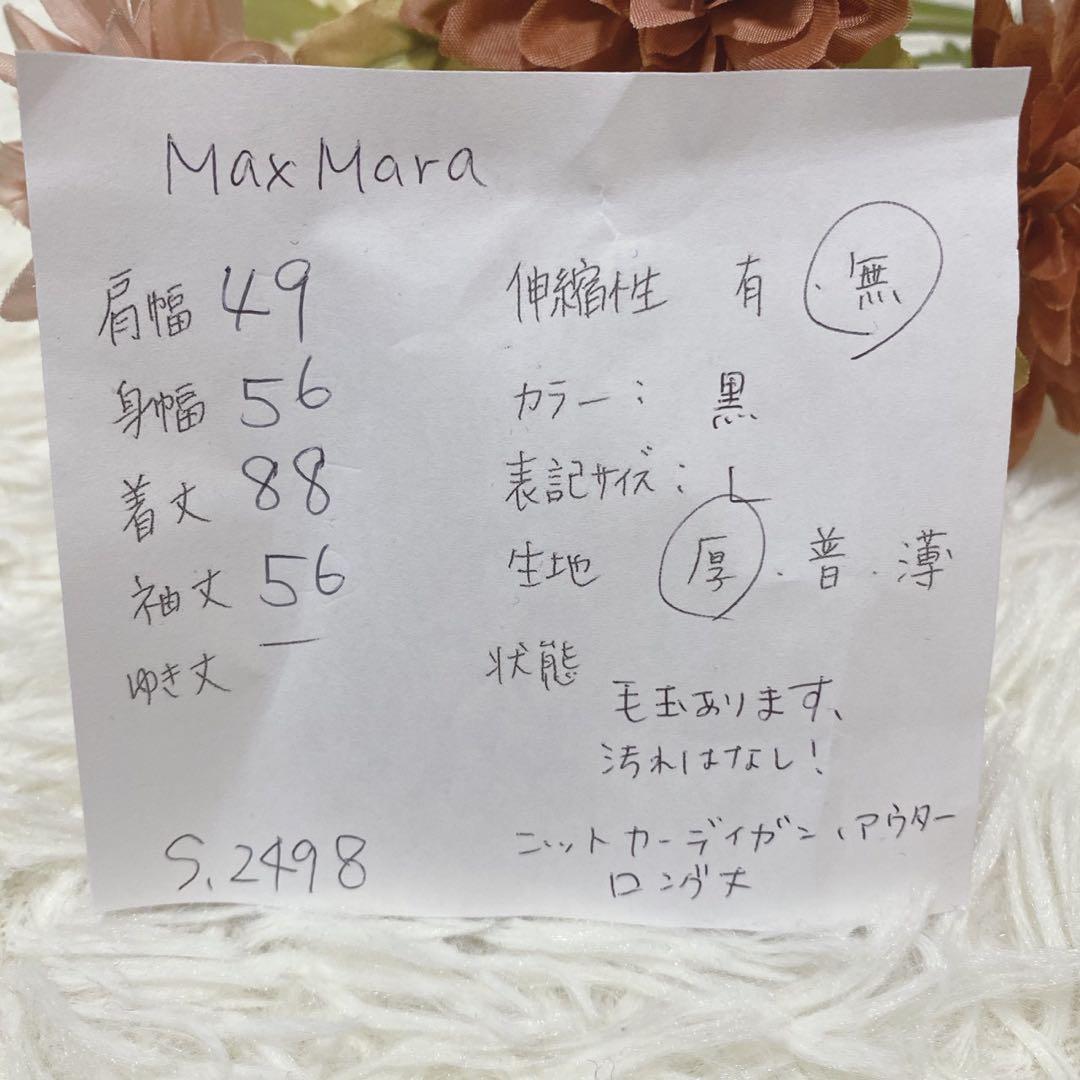 Max Mara
肩幅 49
身幅 56
着丈 88
袖丈 56
ゆき丈 —
S.2498
伸縮性 有・無
カラー： 黒
表記サイズ： L
生地 厚・普・薄
状態
毛玉あります、
汚れはなし！
ニットカーディガン、アウター
ロング丈